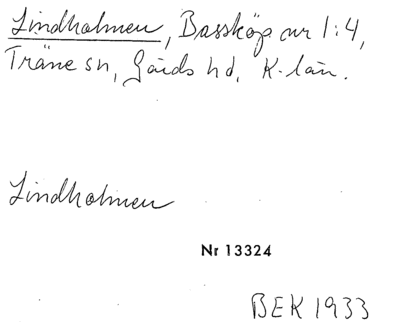 Lindholmen, Bassköp nr 1:4,
Träne sn, Gärds hd, K-län.
Lindholmen
Nr 13324
BEK 1933